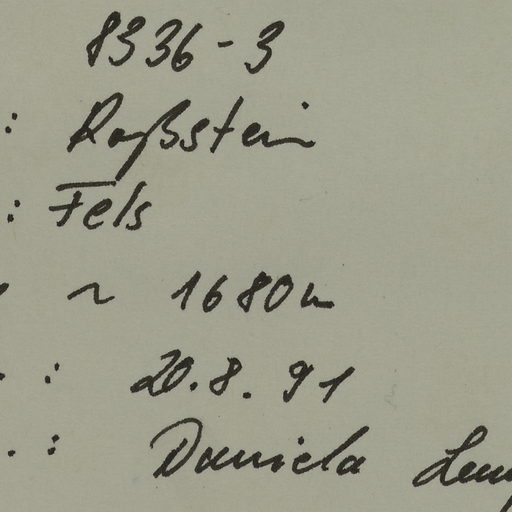 8336-3
: Roßstein
: Fels
~ 1680m
: 20.8.91
. : Daniela